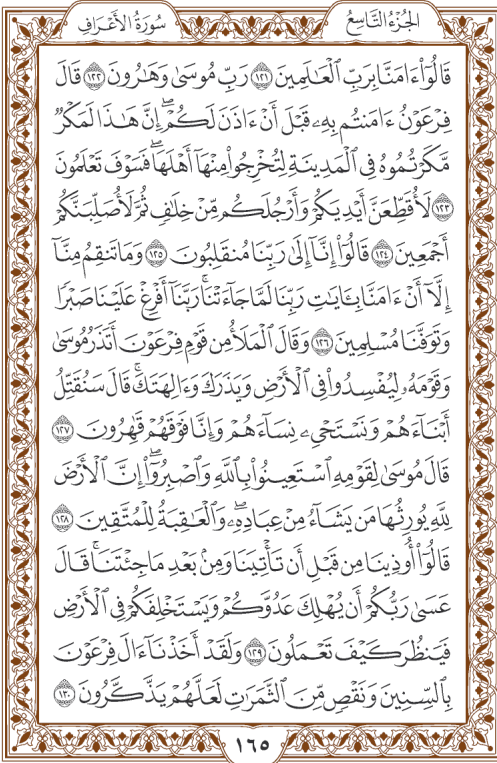 الجُزْءُ التَّاسِعُ
سُورَةُ الأَعْرَافِ
قَالُوٓا۟ ءَامَنَّا بِرَبِّ ٱلْعَٰلَمِينَ ١٢١ رَبِّ مُوسَىٰ وَهَٰرُونَ ١٢٢ قَالَ
فِرْعَوْنُ ءَامَنتُم بِهِۦ قَبْلَ أَنْ ءَاذَنَ لَكُمْ ۖ إِنَّ هَٰذَا لَمَكْرٌ
مَّكَرْتُمُوهُ فِى ٱلْمَدِينَةِ لِتُخْرِجُوا۟ مِنْهَآ أَهْلَهَا ۖ فَسَوْفَ تَعْلَمُونَ
١٢٣ لَأُقَطِّعَنَّ أَيْدِيَكُمْ وَأَرْجُلَكُم مِّنْ خِلَٰفٍ ثُمَّ لَأُصَلِّبَنَّكُمْ
أَجْمَعِينَ ١٢٤ قَالُوٓا۟ إِنَّآ إِلَىٰ رَبِّنَا مُنقَلِبُونَ ١٢٥ وَمَا تَنقِمُ مِنَّآ
إِلَّآ أَنْ ءَامَنَّا بِـَٔايَٰتِ رَبِّنَا لَمَّا جَآءَتْنَا ۚ رَبَّنَآ أَفْرِغْ عَلَيْنَا صَبْرًا
وَتَوَفَّنَا مُسْلِمِينَ ١٢٦ وَقَالَ ٱلْمَلَأُ مِن قَوْمِ فِرْعَوْنَ أَتَذَرُ مُوسَىٰ
وَقَوْمَهُۥ لِيُفْسِدُوا۟ فِى ٱلْأَرْضِ وَيَذَرَكَ وَءَالِهَتَكَ ۚ قَالَ سَنُقَتِّلُ
أَبْنَآءَهُمْ وَنَسْتَحْىِۦ نِسَآءَهُمْ وَإِنَّا فَوْقَهُمْ قَٰهِرُونَ ١٢٧
قَالَ مُوسَىٰ لِقَوْمِهِ ٱسْتَعِينُوا۟ بِٱللَّهِ وَٱصْبِرُوٓا۟ ۖ إِنَّ ٱلْأَرْضَ
لِلَّهِ يُورِثُهَا مَن يَشَآءُ مِنْ عِبَادِهِۦ ۖ وَٱلْعَٰقِبَةُ لِلْمُتَّقِينَ ١٢٨
قَالُوٓا۟ أُوذِينَا مِن قَبْلِ أَن تَأْتِيَنَا وَمِنۢ بَعْدِ مَا جِئْتَنَا ۚ قَالَ
عَسَىٰ رَبُّكُمْ أَن يُهْلِكَ عَدُوَّكُمْ وَيَسْتَخْلِفَكُمْ فِى ٱلْأَرْضِ
فَيَنظُرَ كَيْفَ تَعْمَلُونَ ١٢٩ وَلَقَدْ أَخَذْنَآ ءَالَ فِرْعَوْنَ
بِٱلسِّنِينَ وَنَقْصٍ مِّنَ ٱلثَّمَرَٰتِ لَعَلَّهُمْ يَذَّكَّرُونَ ١٣٠
١٦٥